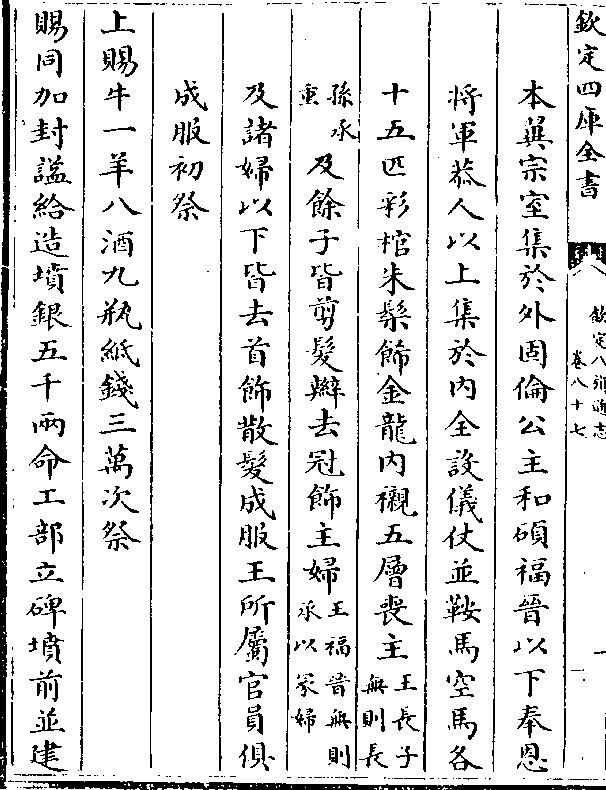 欽定四庫全書
欽定八旗通志
卷八十七
一
本翼宗室集於外固倫公主和碩福晉以下奉恩
將軍恭人以上集於內全設儀仗並鞍馬空馬各
十五匹彩棺朱髹飾金龍內襯五層喪主王長子無則長
孫承重及餘子皆剪髮辮去冠飾主婦王福晉無則承以冢婦
及諸婦以下皆去首飾散髮成服王所屬官員俱
成服初祭
上賜牛一羊八酒九瓶紙錢三萬次祭
賜同加封諡給造墳銀五千兩命工部立碑墳前並建